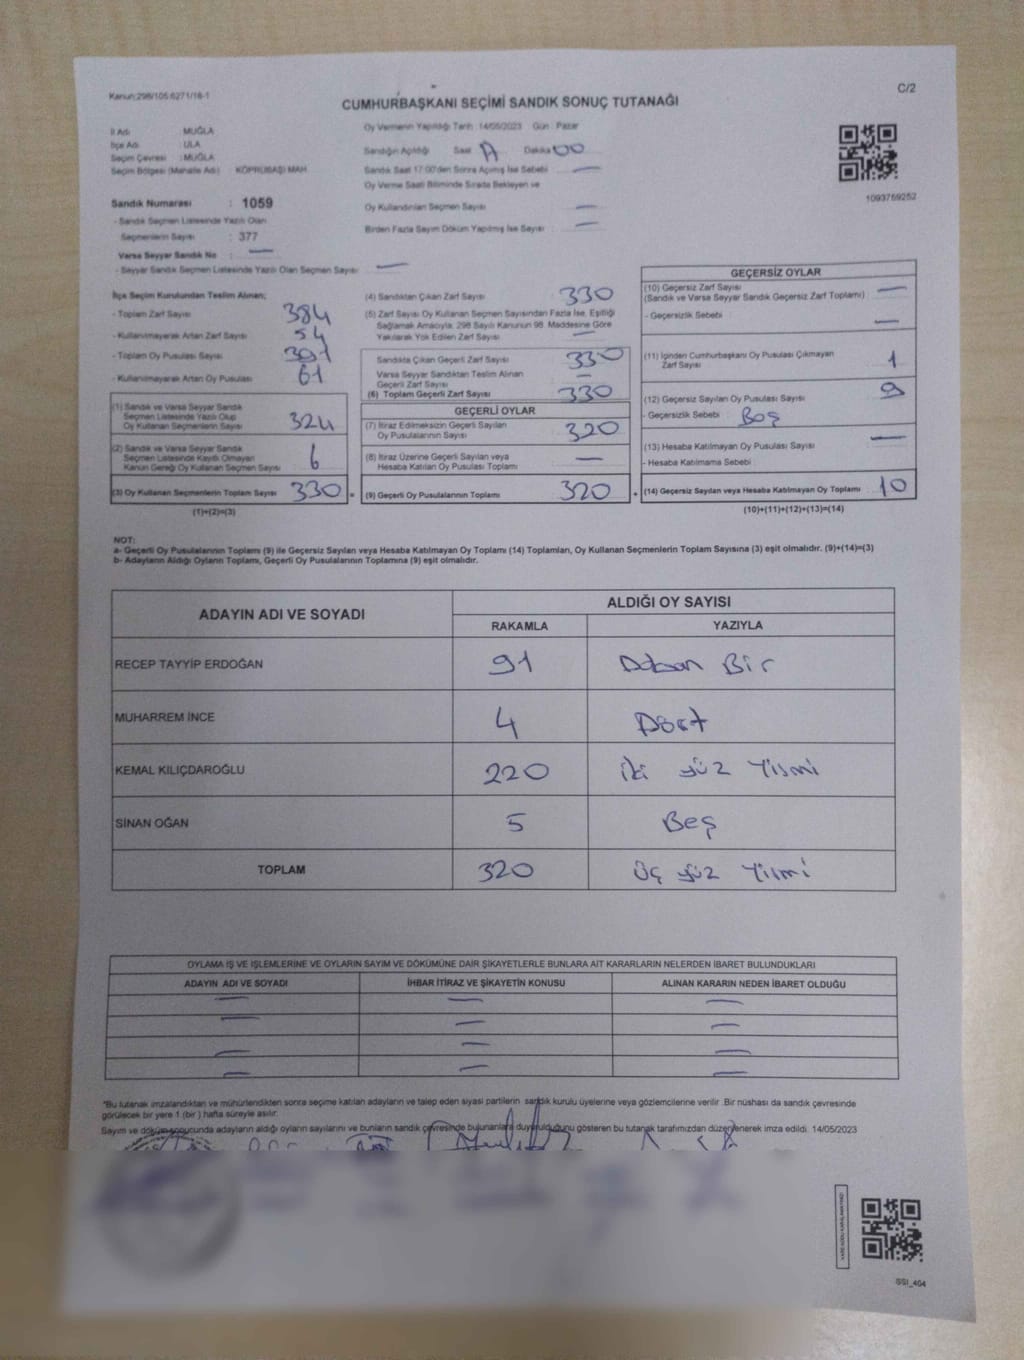 Kanun:298/105:6271/18-1
C/2
CUMHURBAŞKANI SEÇİMİ SANDIK SONUÇ TUTANAĞI
İl Adı : MUĞLA
İlçe Adı : ULA
Seçim Çevresi : MUĞLA
Seçim Bölgesi (Mahalle Adı) : KÖPRÜBAŞI MAH
Sandık Numarası : 1059
- Sandık Seçmen Listesinde Yazılı Olan
Seçmenlerin Sayısı : 377
Varsa Seyyar Sandık No : —
- Seyyar Sandık Seçmen Listesinde Yazılı Olan Seçmen Sayısı : —
Oy Vermenin Yapıldığı Tarih :14/05/2023 Gün : Pazar
Sandığın Açıldığı Saat Dakika 00
Sandık Saat 17:00'den Sonra Açılmış İse Sebebi —
Oy Verme Saati Bitiminde Sırada Bekleyen ve
Oy Kullandırılan Seçmen Sayısı —
Birden Fazla Sayım Döküm Yapılmış İse Sayısı : —
1093759252
İlçe Seçim Kurulundan Teslim Alınan;
- Toplam Zarf Sayısı 384
- Kullanılmayarak Artan Zarf Sayısı 54
- Toplam Oy Pusulası Sayısı
- Kullanılmayarak Artan Oy Pusulası 61
(1) Sandık ve Varsa Seyyar Sandık
Seçmen Listesinde Yazılı Olup
Oy Kullanan Seçmenlerin Sayısı 324
(2) Sandık ve Varsa Seyyar Sandık
Seçmen Listesinde Kayıtlı Olmayan
Kanun Gereği Oy Kullanan Seçmen Sayısı 6
(3) Oy Kullanan Seçmenlerin Toplam Sayısı 330 =
(1)+(2)=(3)
(4) Sandıktan Çıkan Zarf Sayısı 330
(5) Zarf Sayısı Oy Kullanan Seçmen Sayısından Fazla İse, Eşitliği
Sağlamak Amacıyla, 298 Sayılı Kanunun 98. Maddesine Göre
Yakılarak Yok Edilen Zarf Sayısı —
Sandıkta Çıkan Geçerli Zarf Sayısı 330
Varsa Seyyar Sandıktan Teslim Alınan
Geçerli Zarf Sayısı —
(6) Toplam Geçerli Zarf Sayısı 330
GEÇERLİ OYLAR
(7) İtiraz Edilmeksizin Geçerli Sayılan
Oy Pusulalarının Sayısı 320
(8) İtiraz Üzerine Geçerli Sayılan veya
Hesaba Katılan Oy Pusulası Toplamı —
(9) Geçerli Oy Pusulalarının Toplamı 320 +
GEÇERSİZ OYLAR
(10) Geçersiz Zarf Sayısı
(Sandık ve Varsa Seyyar Sandık Geçersiz Zarf Toplamı) —
- Geçersizlik Sebebi : —
(11) İçinden Cumhurbaşkanı Oy Pusulası Çıkmayan
Zarf Sayısı 1
(12) Geçersiz Sayılan Oy Pusulası Sayısı 9
- Geçersizlik Sebebi : Boş
(13) Hesaba Katılmayan Oy Pusulası Sayısı —
- Hesaba Katılmama Sebebi
(14) Geçersiz Sayılan veya Hesaba Katılmayan Oy Toplamı 10
(10)+(11)+(12)+(13)=(14)
NOT:
a- Geçerli Oy Pusulalarının Toplamı (9) ile Geçersiz Sayılan veya Hesaba Katılmayan Oy Toplamı (14) Toplamları, Oy Kullanan Seçmenlerin Toplam Sayısına (3) eşit olmalıdır. (9)+(14)=(3)
b- Adayların Aldığı Oyların Toplamı, Geçerli Oy Pusulalarının Toplamına (9) eşit olmalıdır.
ADAYIN ADI VE SOYADI ALDIĞI OY SAYISI
RAKAMLA YAZIYLA
RECEP TAYYİP ERDOĞAN 91 Doksan Bir
MUHARREM İNCE 4 Dört
KEMAL KILIÇDAROĞLU 220 iki yüz Yirmi
SİNAN OĞAN 5 Beş
TOPLAM 320 üç yüz Yirmi
OYLAMA İŞ VE İŞLEMLERİNE VE OYLARIN SAYIM VE DÖKÜMÜNE DAİR ŞİKAYETLERLE BUNLARA AİT KARARLARIN NELERDEN İBARET BULUNDUKLARI
ADAYIN ADI VE SOYADI İHBAR İTİRAZ VE ŞİKAYETİN KONUSU ALINAN KARARIN NEDEN İBARET OLDUĞU
— — —
— — —
— — —
— — —
*Bu tutanak imzalandıktan ve mühürlendikten sonra seçime katılan adayların ve talep eden siyasi partilerin sandık kurulu üyelerine veya gözlemcilerine verilir .Bir nüshası da sandık çevresinde
görülecek bir yere 1 (bir ) hafta süreyle asılır.
Sayım ve döküm sonucunda adayların aldığı oyların sayılarını ve bunların sandık çevresinde bulunanlara duyurulduğunu gösteren bu tutanak tarafımızdan düzenlenerek imza edildi. 14/05/2023
SSI_404